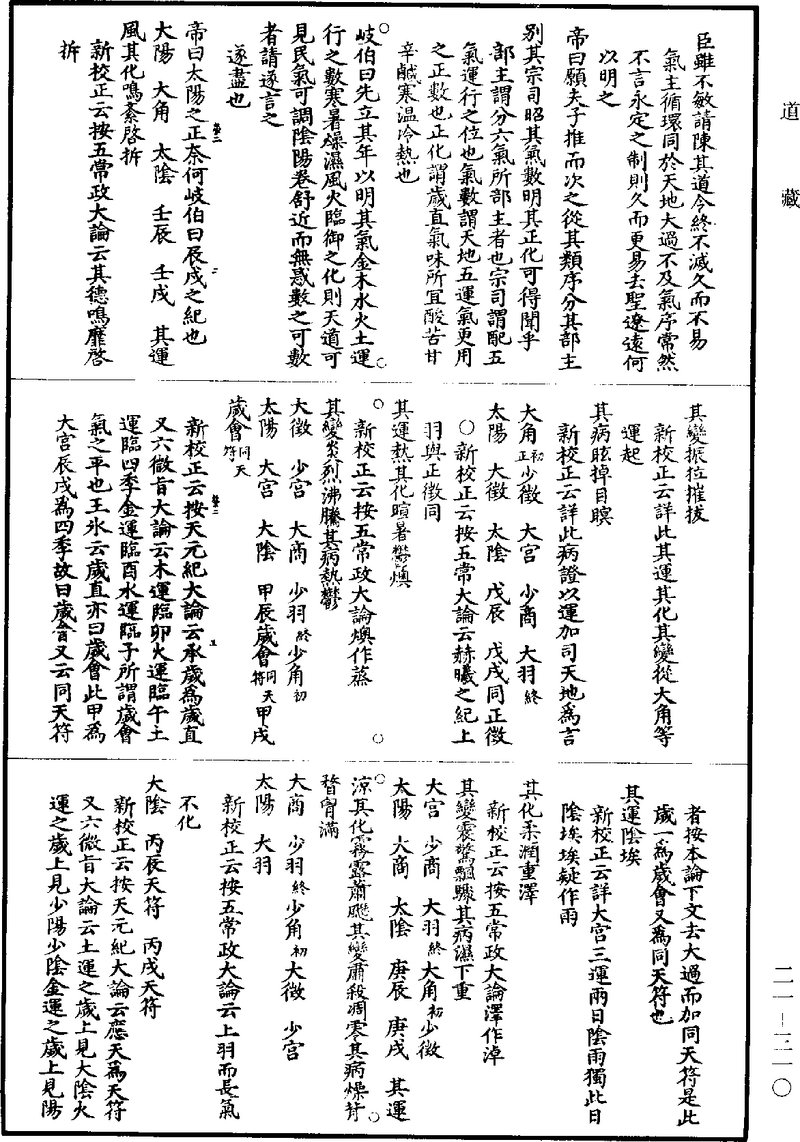 道藏
臣雖不敏請陳其道令終不滅久而不易
氣主循環同於天地大過不及氣序常然
不言永定之制則久而更易去聖遼遠何
以明之
帝曰願夫子推而次之從其類序分其部主
別其宗司昭其氣數明其正化可得聞乎
部主謂分六氣所部主者也宗司謂配五
氣運行之位也氣數謂天地五運氣更用
之正數也正化謂歲直氣味所宜酸苦甘
辛鹹寒溫冷熱也
岐伯曰先立其年以明其氣金木水火土運
行之數寒暑燥濕風火臨御之化則天道可
見民氣可調陰陽卷舒近而無惑數之可數
者請遂言之
遂盡也
帝曰太陽之正奈何岐伯曰辰戌之紀也
大陽 大角 太陰 壬辰 壬戌 其運
風其化鳴紊啓拆
新校正云按五常政大論云其德鳴靡啓
拆
其變振拉摧拔
新校正云詳此其運其化其變從大角等
運起
其病眩掉目瞑
新校正云詳此病證以運加司天地爲言
大角初正少徵 大宮 少商 大羽終
太陽 大徵 太陰 戊辰 戊戌同正徵
○新校正云按五常大論云赫曦之紀上
羽與正徵同
其運熱其化暄暑鬱燠
新校正云按五常政大論燠作蒸
其變炎烈沸騰其病熱鬱
大徵 少宮 大商 少羽終少角初
太陽 大宮 大陰 甲辰歲會同天符甲戌
歲會同天符
新校正云按天元紀大論云承歲爲歲直
又六微旨大論云木運臨卯火運臨午土
運臨四季金運臨酉水運臨子所謂歲會
氣之平也王冰云歲直亦曰歲會此甲爲
大宮辰戌爲四季故曰歲會又云同天符
者按本論下文去大過而加同天符是此
歲一爲歲會又爲同天符也
其運陰埃
新校正云詳大宮三運兩曰陰雨獨此曰
陰埃埃疑作雨
其化柔潤重澤
新校正云按五常政大論澤作淖
其變震驚飄驟其病濕下重
大宮 少商 大羽終大角初少徵
太陽 大商 太陰 庚辰 庚戌 其運
涼其化霧露蕭飋其變肅殺凋零其病燥背
瞀胷滿
大商 少羽終少角初大徵 少宮
太陽 大羽
新校正云按五常政大論云上羽而長氣
不化
大陰 丙辰天符 丙戌天符
新校正云按天元紀大論云應天爲天符
又六微旨大論云土運之歲上見大陰火
運之歲上見少陽少陰金運之歲上見陽
二一—三一〇